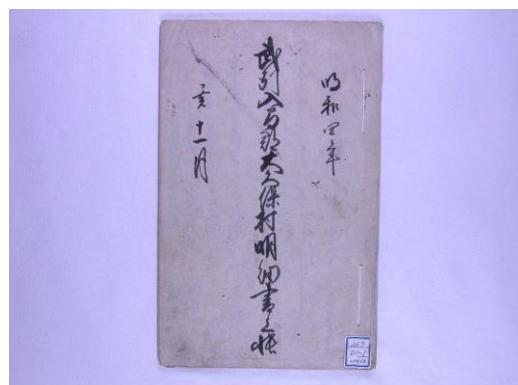 明和四年
武州入間郡大久保村明細書之帳
亥十一月